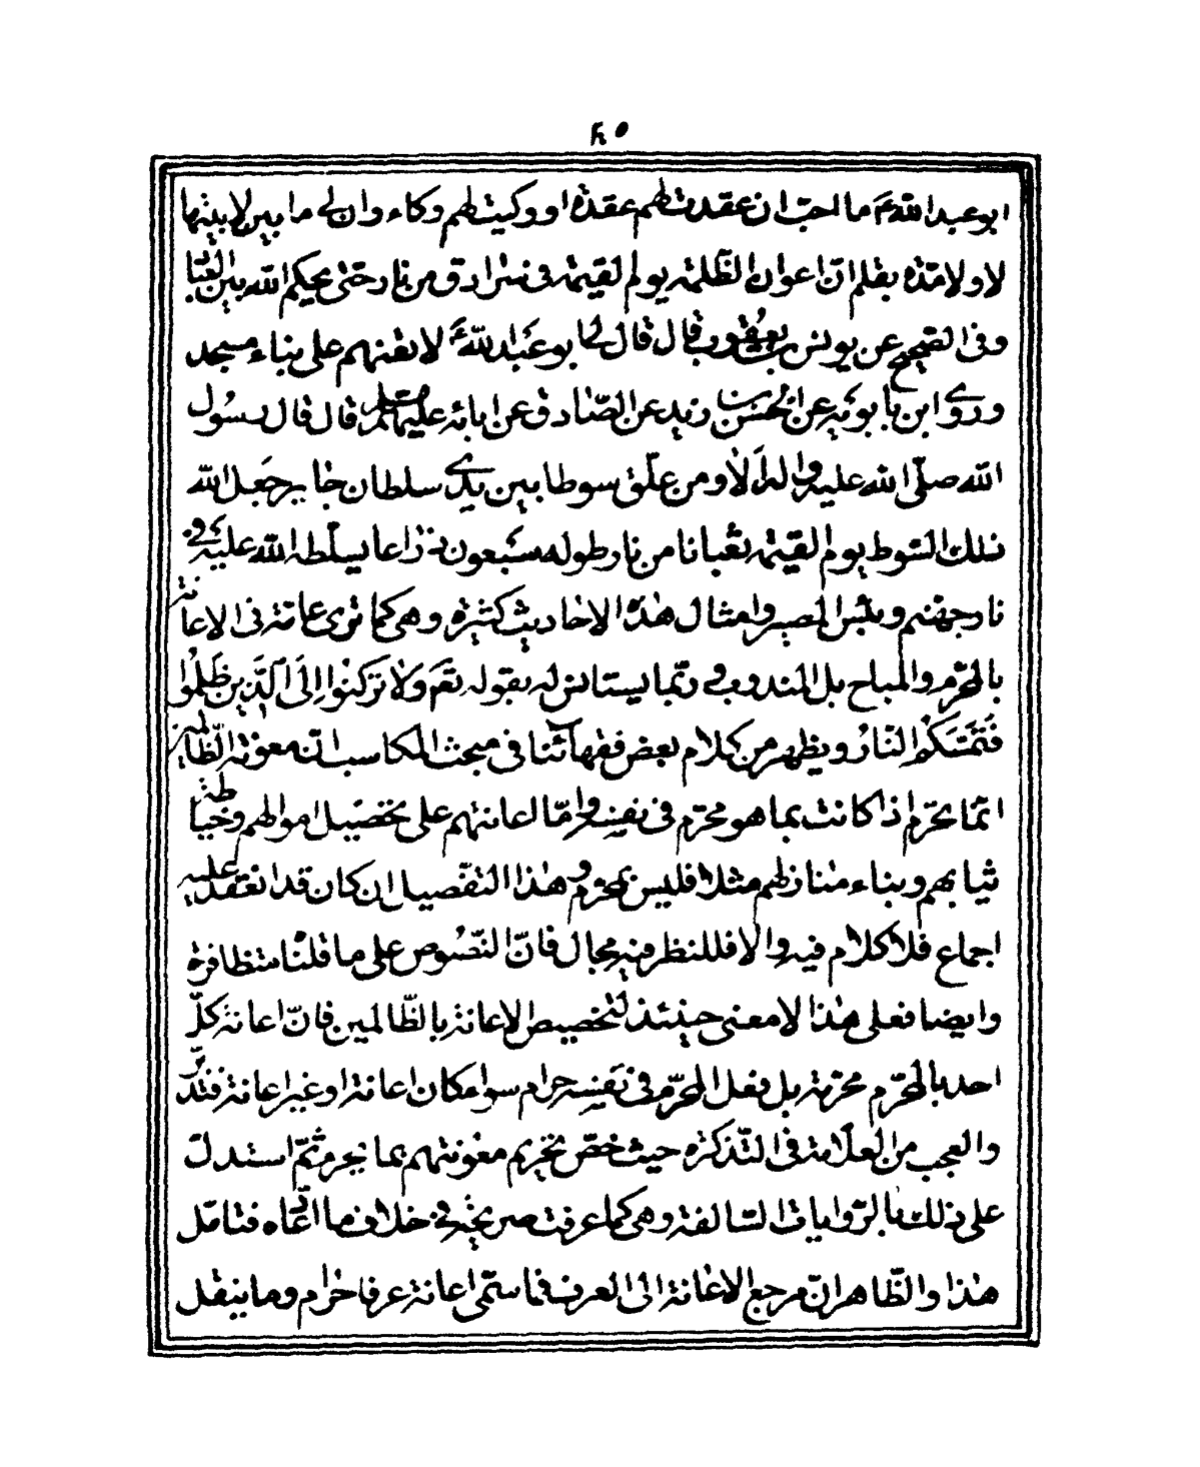 ٤٠
ابو عبد الله ع ما احبّ ان عقدت لهم عقدة او وكيت لهم وكاء وان لى ما بين لابيتها
لا ولا مدّة بقلم انّ اعوان الظّلمة يوم القيمة فى سرادق من نار حتى يحكم الله بين العباد
وفى الصّحيح عن يونس بن يعقوب قال قال لى ابو عبد الله ع لا تعنهم على بناء مسجد
وروى ابن بابويه عن الحسين بن زيد عن الصّادق عن ابائه عليهم السلم قال قال رسول
الله صلّى الله عليه واله الا ومن علّق سوطا بين يدى سلطان جاير جعل الله
ذلك السّوط يوم القيمة ثعبانا من نار طوله سبعون ذراعا يسلّطه الله عليه فى
نار جهنم وبئس المصير وامثال هذه الاحاديث كثيرة وهى كما ترى عامّة فى الاعانة
بالمحرّم والمباح بل المندوب وربّما يستانس له بقوله تعم ولا تركنوا الى الّذين ظلموا
فتمسّكم النّار ويظهر من كلام بعض فقهائنا فى مبحث المكاسب انّ معونة الظّالمين
انّما تحرم اذا كانت بما هو محرّم فى نفسه وامّا اعانتهم على تحصيل اموالهم وخياطة
ثيابهم وبناء منازلهم مثلا فليس بمحرّم وهذا التّفصيل ان كان قد انعقد عليه
اجماع فلا كلام فيه والا فللنظر فيه مجال فانّ النّصوص على ما قلنا متظافرة
وايضا فعلى هذا لا معنى حينئذ لتخصيص الاعانة بالظّالمين فانّ اعانة كلّ
احد بالمحرّم محرّمة بل فعل المحرّم فى نفسه حرام سواء كان اعانة او غير اعانة فتدبّر
والعجب من العلّامة فى التّذكرة حيث خصّ تحريم معونتهم بما يحرم ثمّ استدلّ
على ذلك بالرّوايات السّالفة وهى كما عرفت صريحة فى خلاف ما ادّعاه فتامّل
هذا والظّاهر انّ مرجع الاعانة الى العرف فما سمّى اعانة عرفا حرام وما ينقل